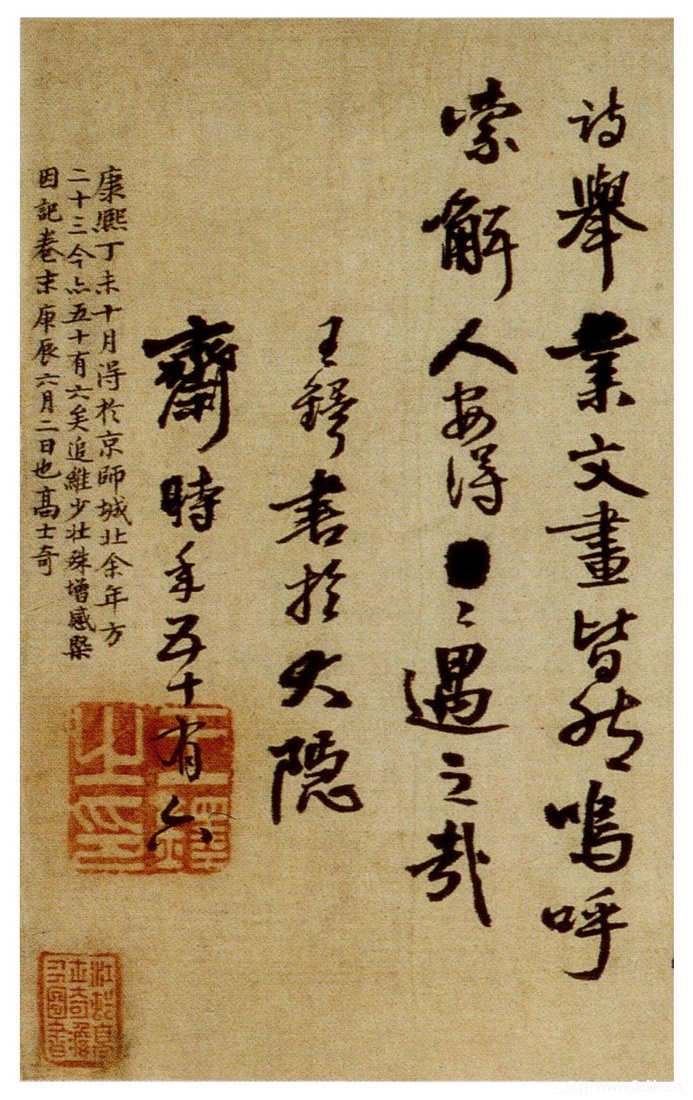 詩舉業文畫皆然嗚呼
索解人安得㇀遇之哉
王鐸書於大隱
齋時年五十有六
康熙丁未十月得於京師城北余年方
二十三今亦五十有六矣追維少壯殊增感槩
因記卷末庚辰六月二日也高士奇
王鐸之印